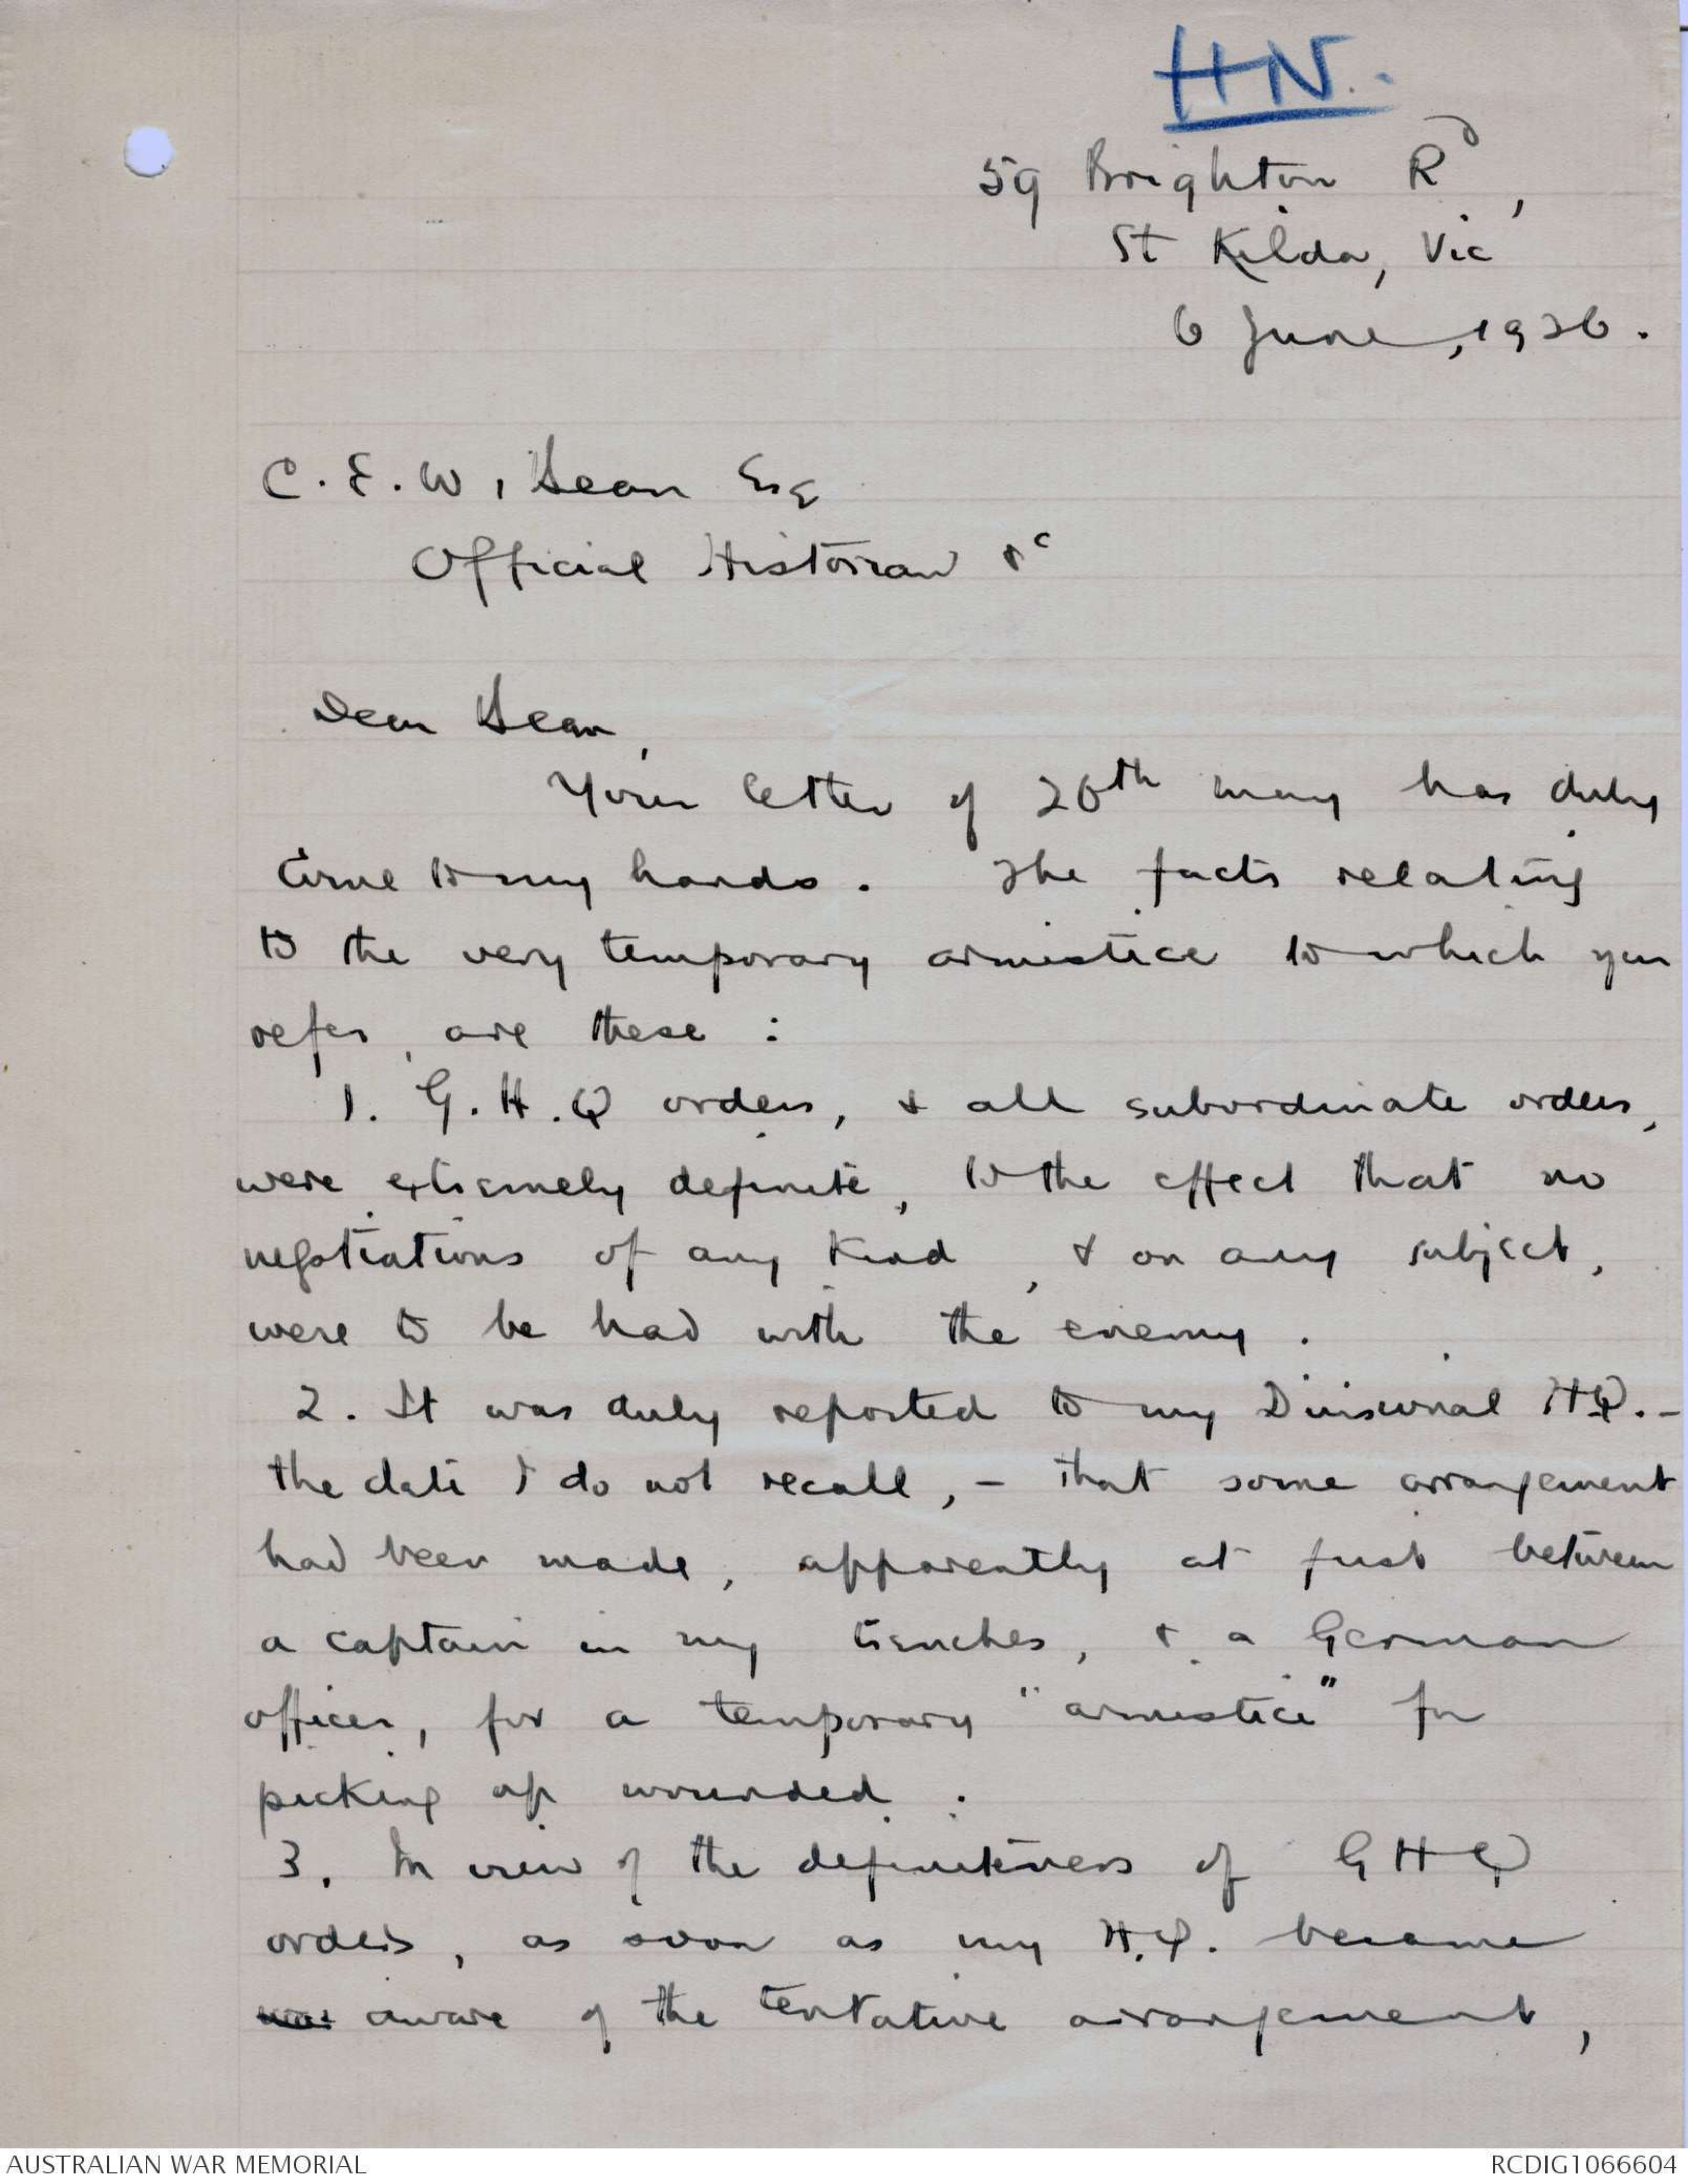 HN.
59 Brighton Rd,
St Kilda, Vic
6 June, 1926.
C. E. W. Bean Esq
Official Historian &c
Dear Bean,
Your letter of 26th May has duly
come to my hands. The facts relating
to the very temporary armistice to which you
refer, are these :
1. G.H.Q orders, & all subordinate orders,
were extremely definite, to the effect that no
negotiations of any kind, & on any subject,
were to be had with the enemy.
2. It was duly reported to my Divisional HQ. -
the date I do not recall, - that some arrangement
had been made, apparently at first between
a captain in my trenches, & a German
officer, for a temporary "armistice" for
picking up wounded.
3. In view of the definiteness of GHQ
orders, as soon as my H.Q. became
was aware of the tentative arrangement,
AUSTRALIAN WAR MEMORIAL
RCDIG1066604